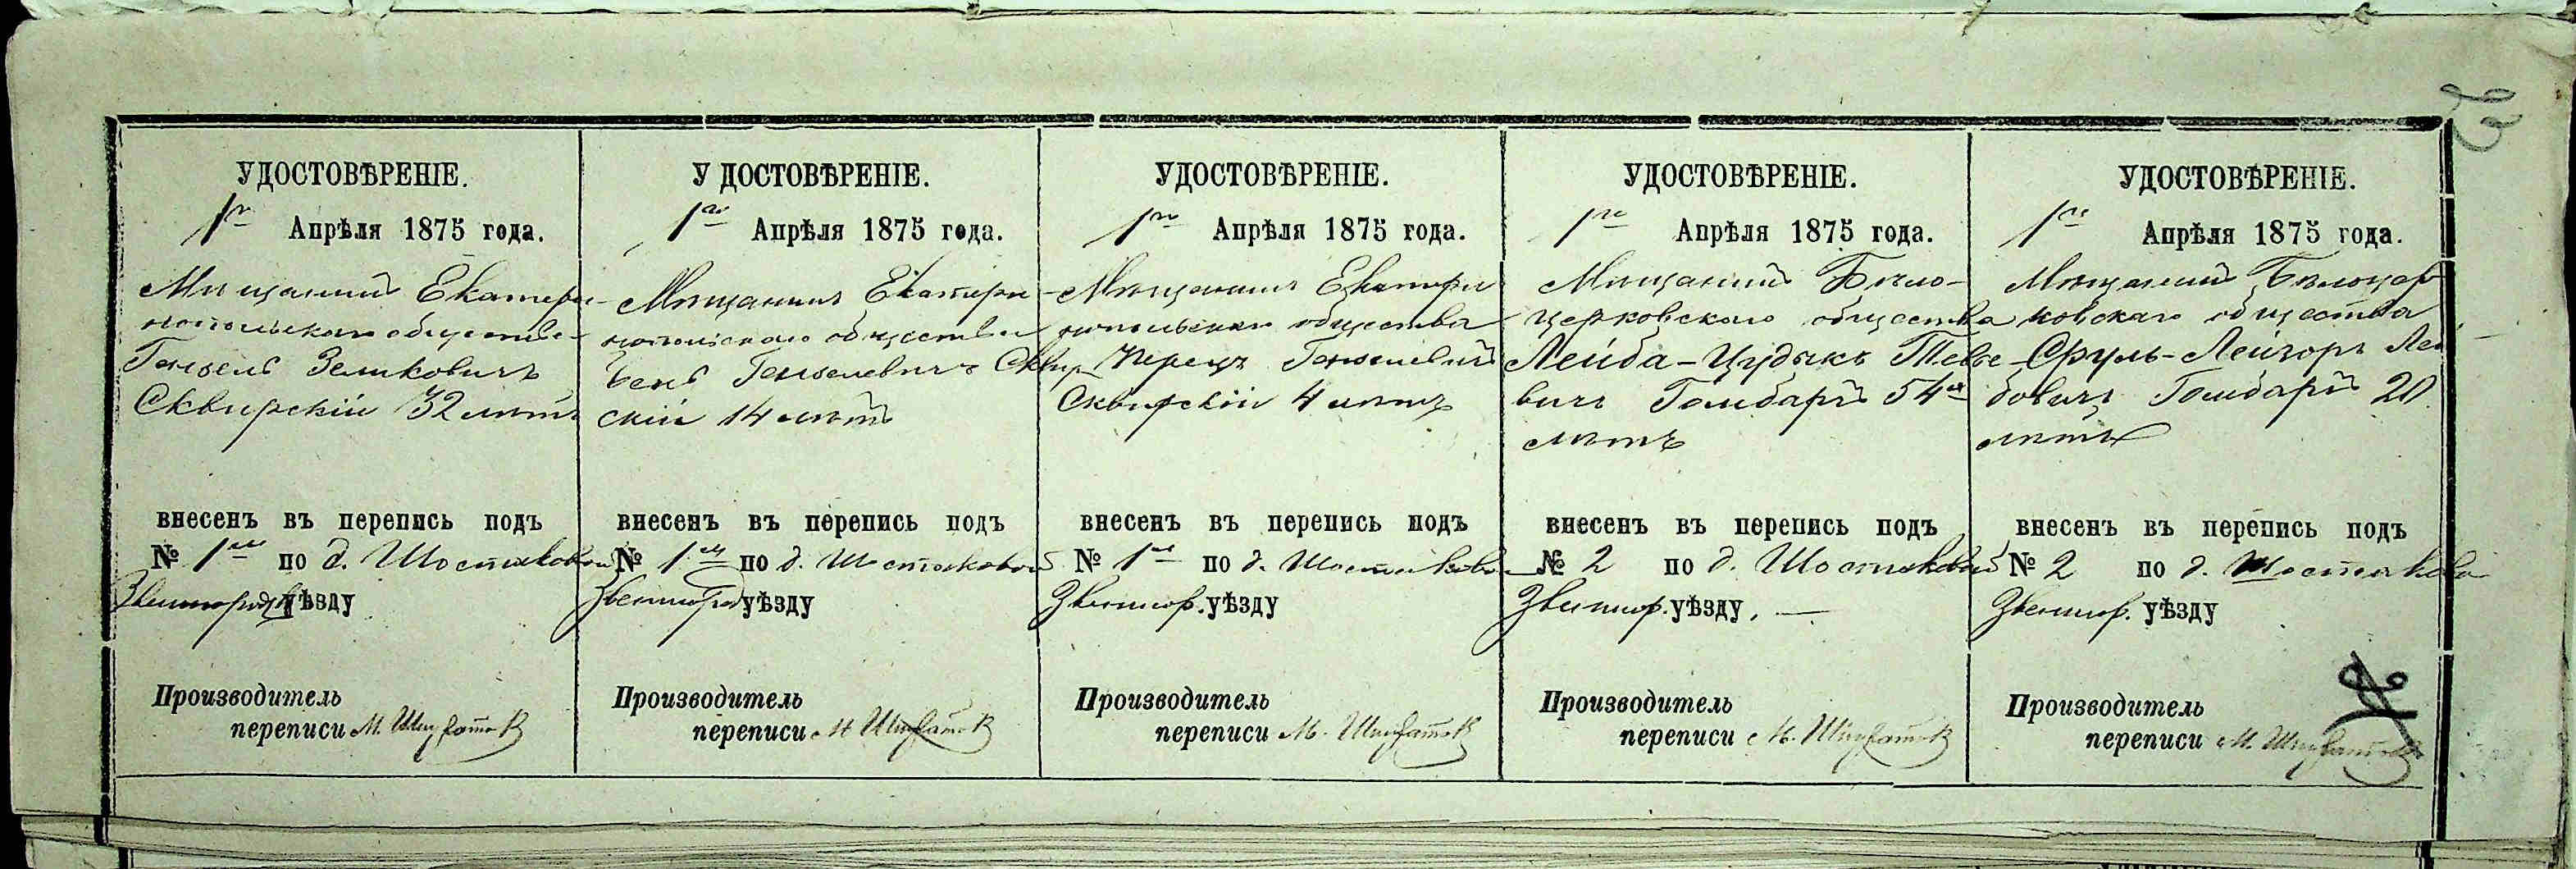 УДОСТОВѢРЕНІЕ.
1го Апрѣля 1875 года.
Мѣщанинъ Екатери-
нопольскаго общества
Гензель Зеликовичъ
Сквирскій 32 лѣтъ
внесенъ въ перепись подъ
№ 1мъ по д. Шостаковой
Звенигородск уѣзду
Производитель
переписи М.
У ДОСТОВѢРЕНІЕ.
1го Апрѣля 1875 года.
Мѣщанинъ Екатери-
нопольскаго общества
Гензелевичъ Сквир-
скій 14 лѣтъ
внесенъ въ перепись подъ
№ 1мъ по д. Шостаковой
Звенигород уѣзду
Производитель
переписи М.
УДОСТОВѢРЕНІЕ.
1го Апрѣля 1875 года.
Мѣщанинъ Екатери
нопольскаго общества
Перецъ Гензелевичъ
Сквирскій 4 лѣтъ
внесенъ въ перепись подъ
№ 1мъ по д. Шостаковой
Звенигор. уѣзду
Производитель
переписи М.
УДОСТОВѢРЕНІЕ.
1го Апрѣля 1875 года.
Мѣщанинъ Бѣло-
церковскаго общества
Лейба-Цудыкъ Тевье-
вичъ Гомбаръ 54
лѣтъ
внесенъ въ перепись подъ
№ 2 по д. Шостаковой
Звенигор. уѣзду.
Производитель
переписи М.
УДОСТОВѢРЕНІЕ.
1го Апрѣля 1875 года.
Мѣщанинъ Бѣлоцер
ковскаго общества
Сруль-Лейзоръ Лей
бовичъ Гомбаръ 20
лѣтъ
внесенъ въ перепись подъ
№ 2 по д. Шостаково
Звенигор. уѣзду
Производитель
переписи М.